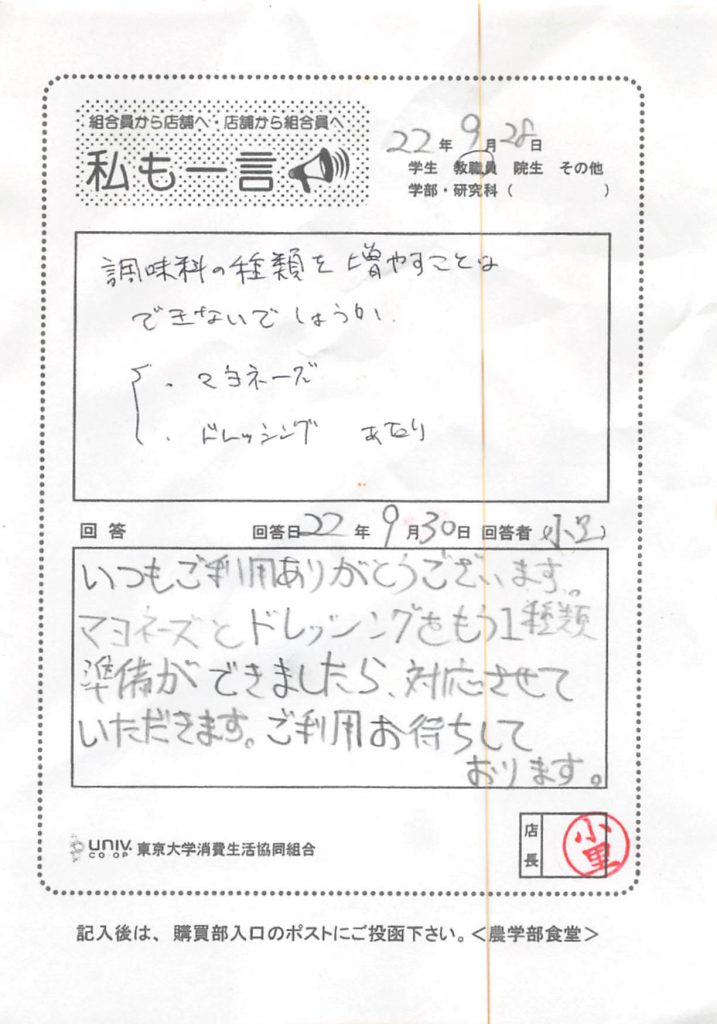 組合員から店舗へ・店舗から組合員へ
私も一言
22年 9月 28日
学生 教職員 院生 その他
学部・研究科（ ）
調味料の種類を増やすことは
できないでしょうか
・マヨネーズ
・ドレッシング あたり
回答 回答日 22年 9月30日 回答者（小里）
いつもご利用ありがとうございます。
マヨネーズとドレッシングをもう1種類
準備ができましたら、対応させて
いただきます。ご利用お待ちして
おります。
UNIV. CO-OP 東京大学消費生活協同組合
店長 小里
記入後は、購買部入口のポストにご投函下さい。＜農学部食堂＞